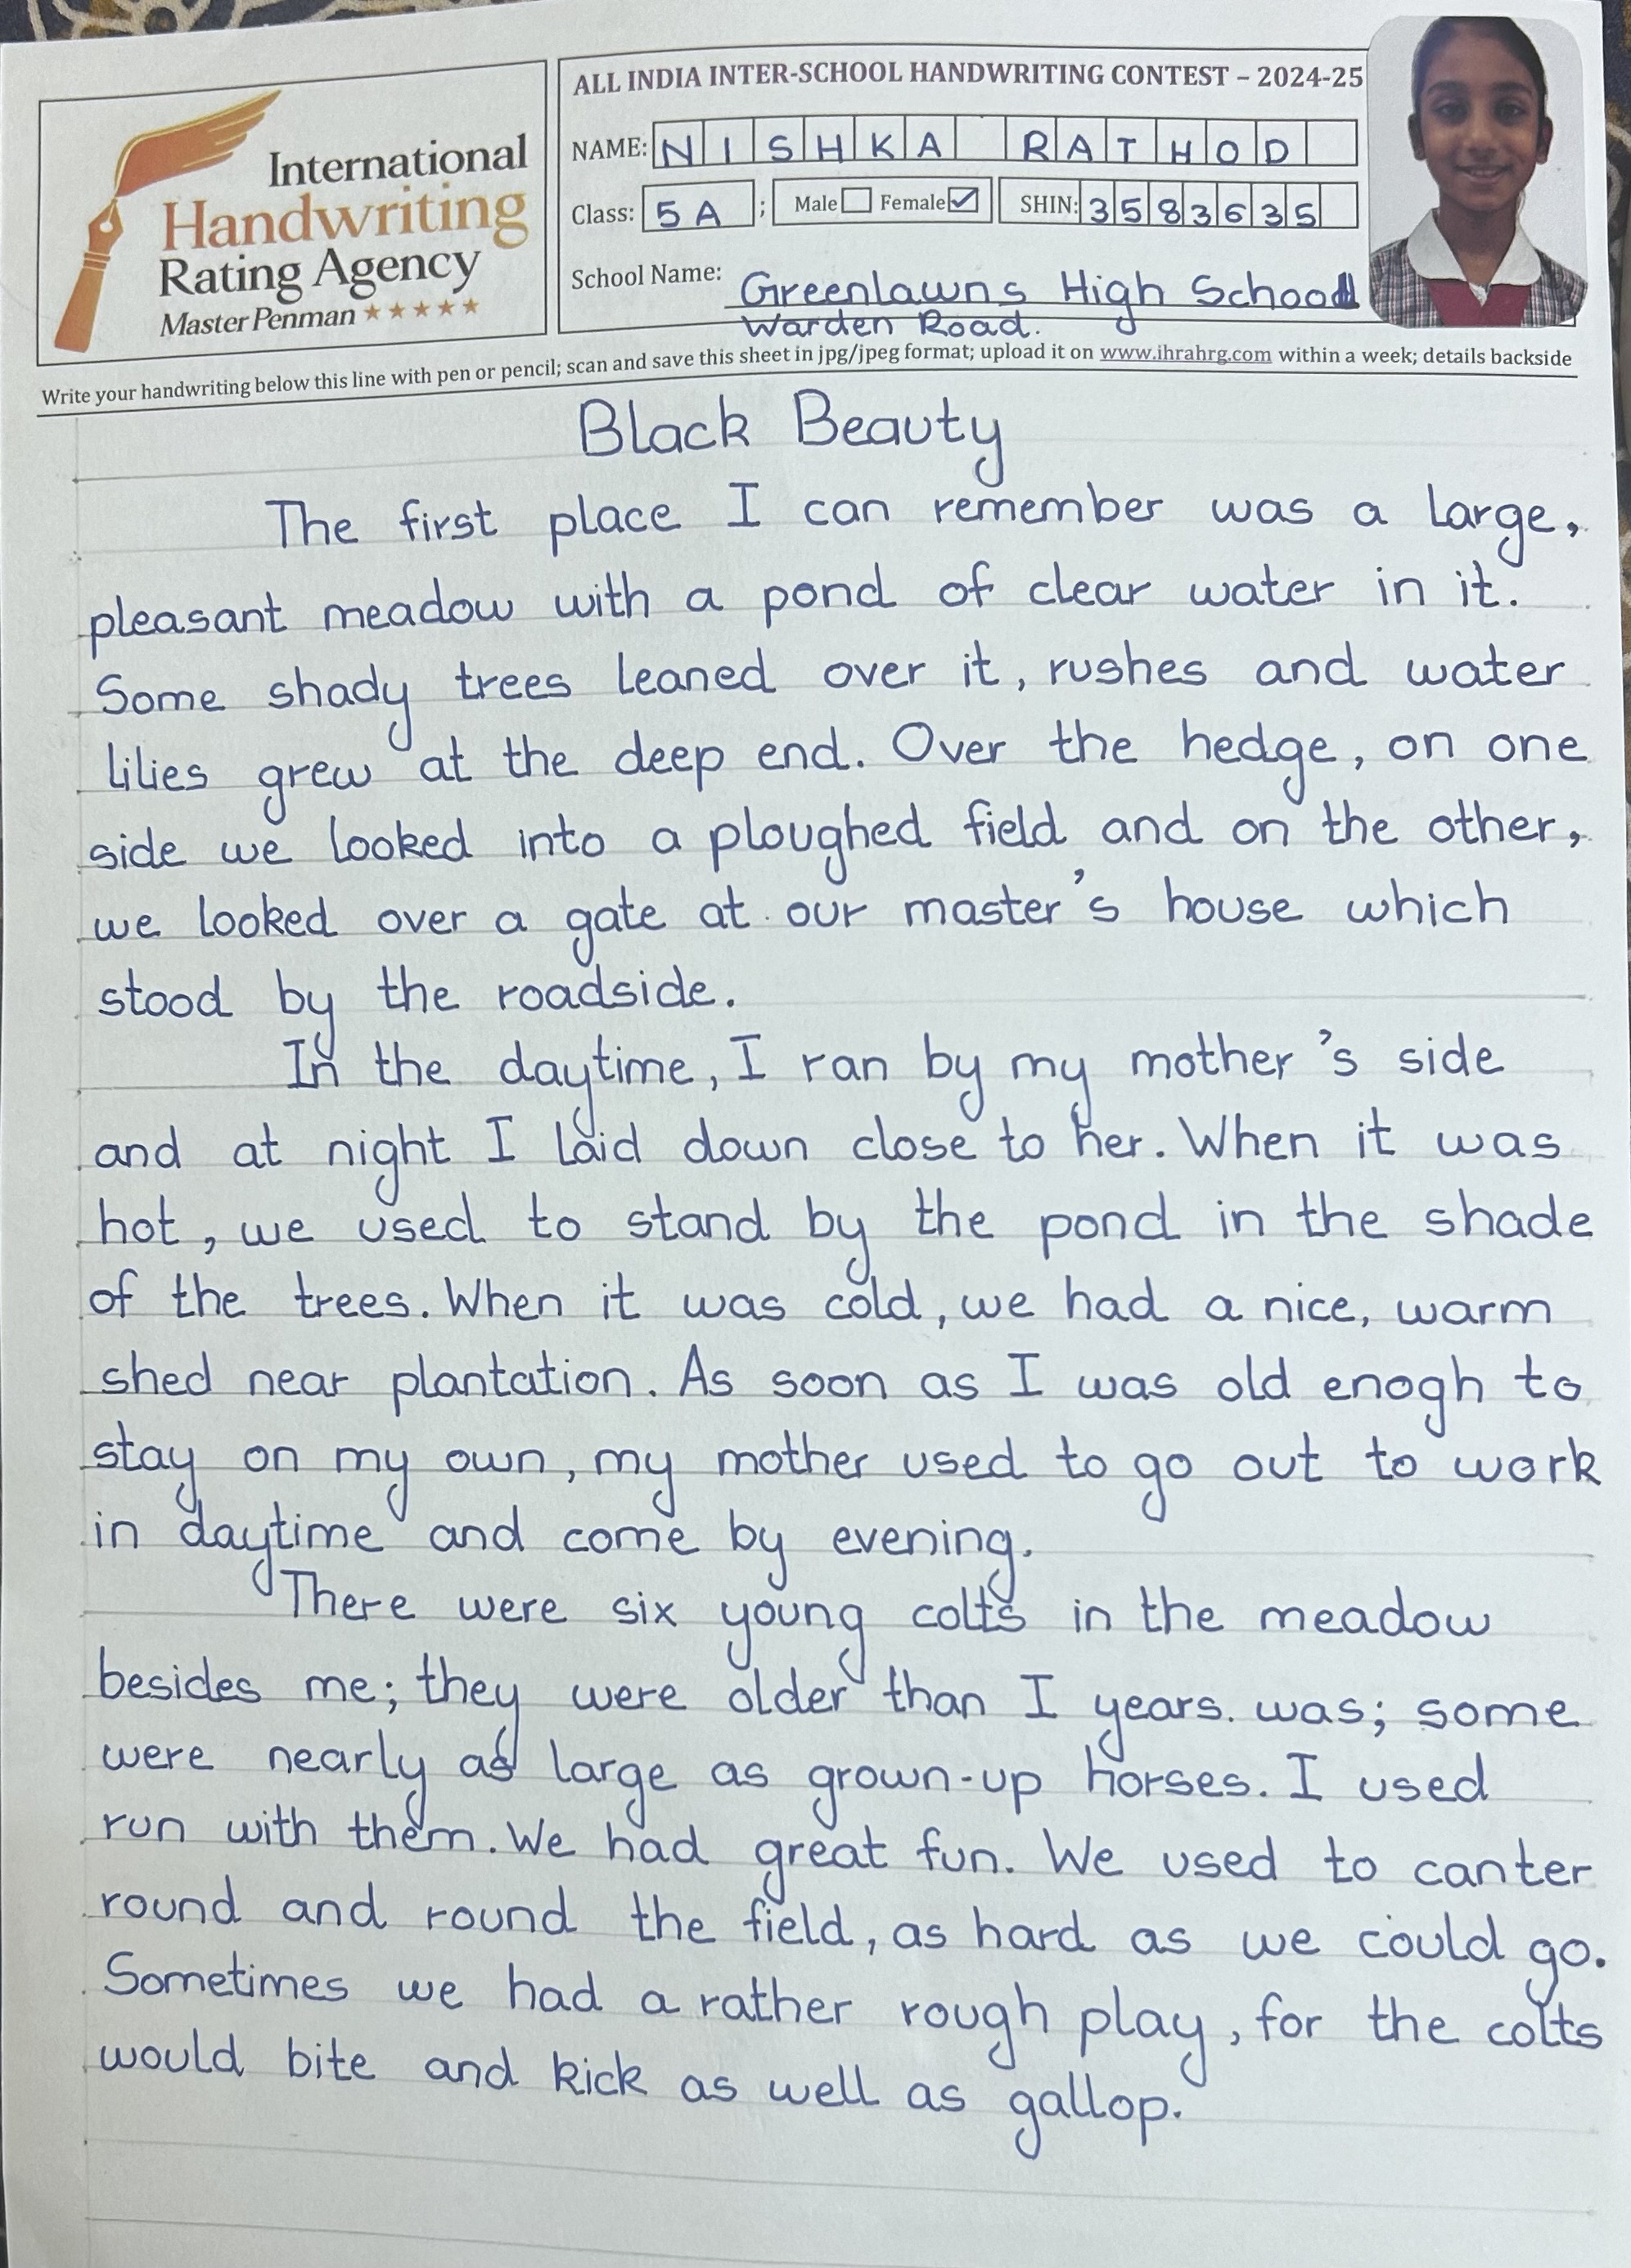 International
Handwriting
Rating Agency
Master Penman ★★★★★
ALL INDIA INTER-SCHOOL HANDWRITING CONTEST – 2024-25
NAME: NISHKA RATHOD
Class: 5 A ; Male Female ✓ SHIN: 3583635
School Name: Greenlawns High School
Warden Road.
Write your handwriting below this line with pen or pencil; scan and save this sheet in jpg/jpeg format; upload it on www.ihrahrg.com within a week; details backside
Black Beauty
The first place I can remember was a large,
pleasant meadow with a pond of clear water in it.
Some shady trees leaned over it, rushes and water
lilies grew at the deep end. Over the hedge, on one
side we looked into a ploughed field and on the other,
we looked over a gate at our master's house which
stood by the roadside.
In the daytime, I ran by my mother's side
and at night I laid down close to her. When it was
hot, we used to stand by the pond in the shade
of the trees. When it was cold, we had a nice, warm
shed near plantation. As soon as I was old enogh to
stay on my own, my mother used to go out to work
in daytime and come by evening.
There were six young colts in the meadow
besides me; they were older than I years. was; some
were nearly as large as grown-up horses. I used
run with them. We had great fun. We used to canter
round and round the field, as hard as we could go.
Sometimes we had a rather rough play, for the colts
would bite and kick as well as gallop.